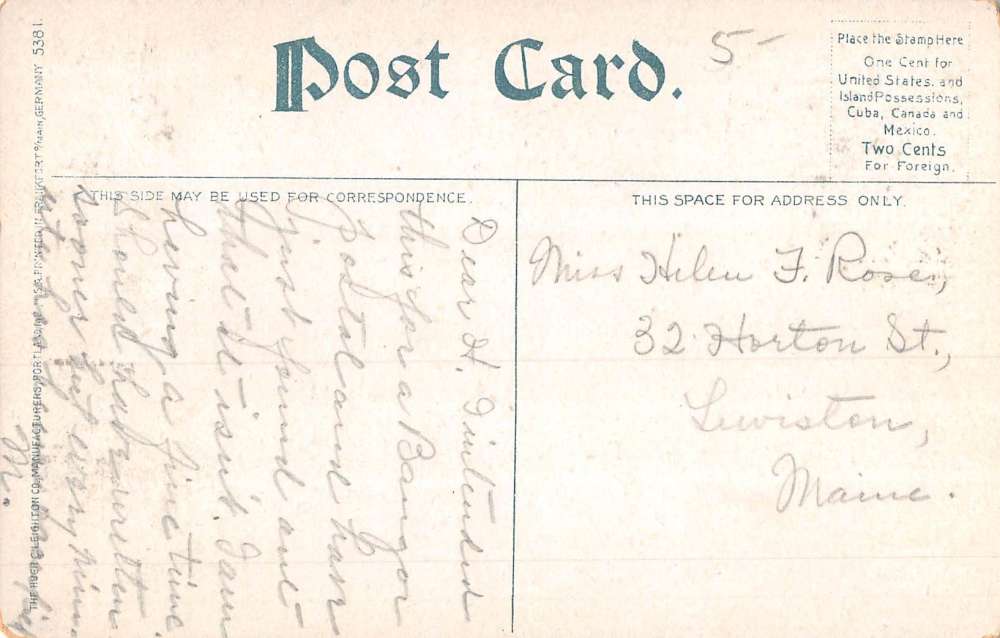 Post Card.
5-
Place the Stamp Here
One Cent for
United States, and
Island Possessions,
Cuba, Canada and
Mexico.
Two Cents
For Foreign.
THIS SIDE MAY BE USED FOR CORRESPONDENCE.
THIS SPACE FOR ADDRESS ONLY.
Dear H. I intended
this for a Bangor
postal and have
just found out
that it isn't. I am
having a fine time.
Should have written
sooner but every min.
M.
Miss Helen F. Rose,
32 Horton St.,
Lewiston,
Maine.
THE HUGH C. LEIGHTON CO., MANUFACTURERS, PORTLAND, ME., U.S.A. PRINTED IN FRANKFORT o/MAIN, GERMANY 5381.